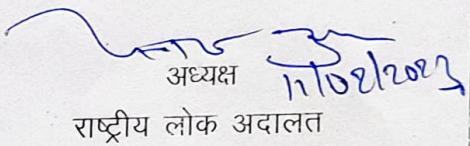 अध्यक्ष
11/02/2023
राष्ट्रीय लोक अदालत